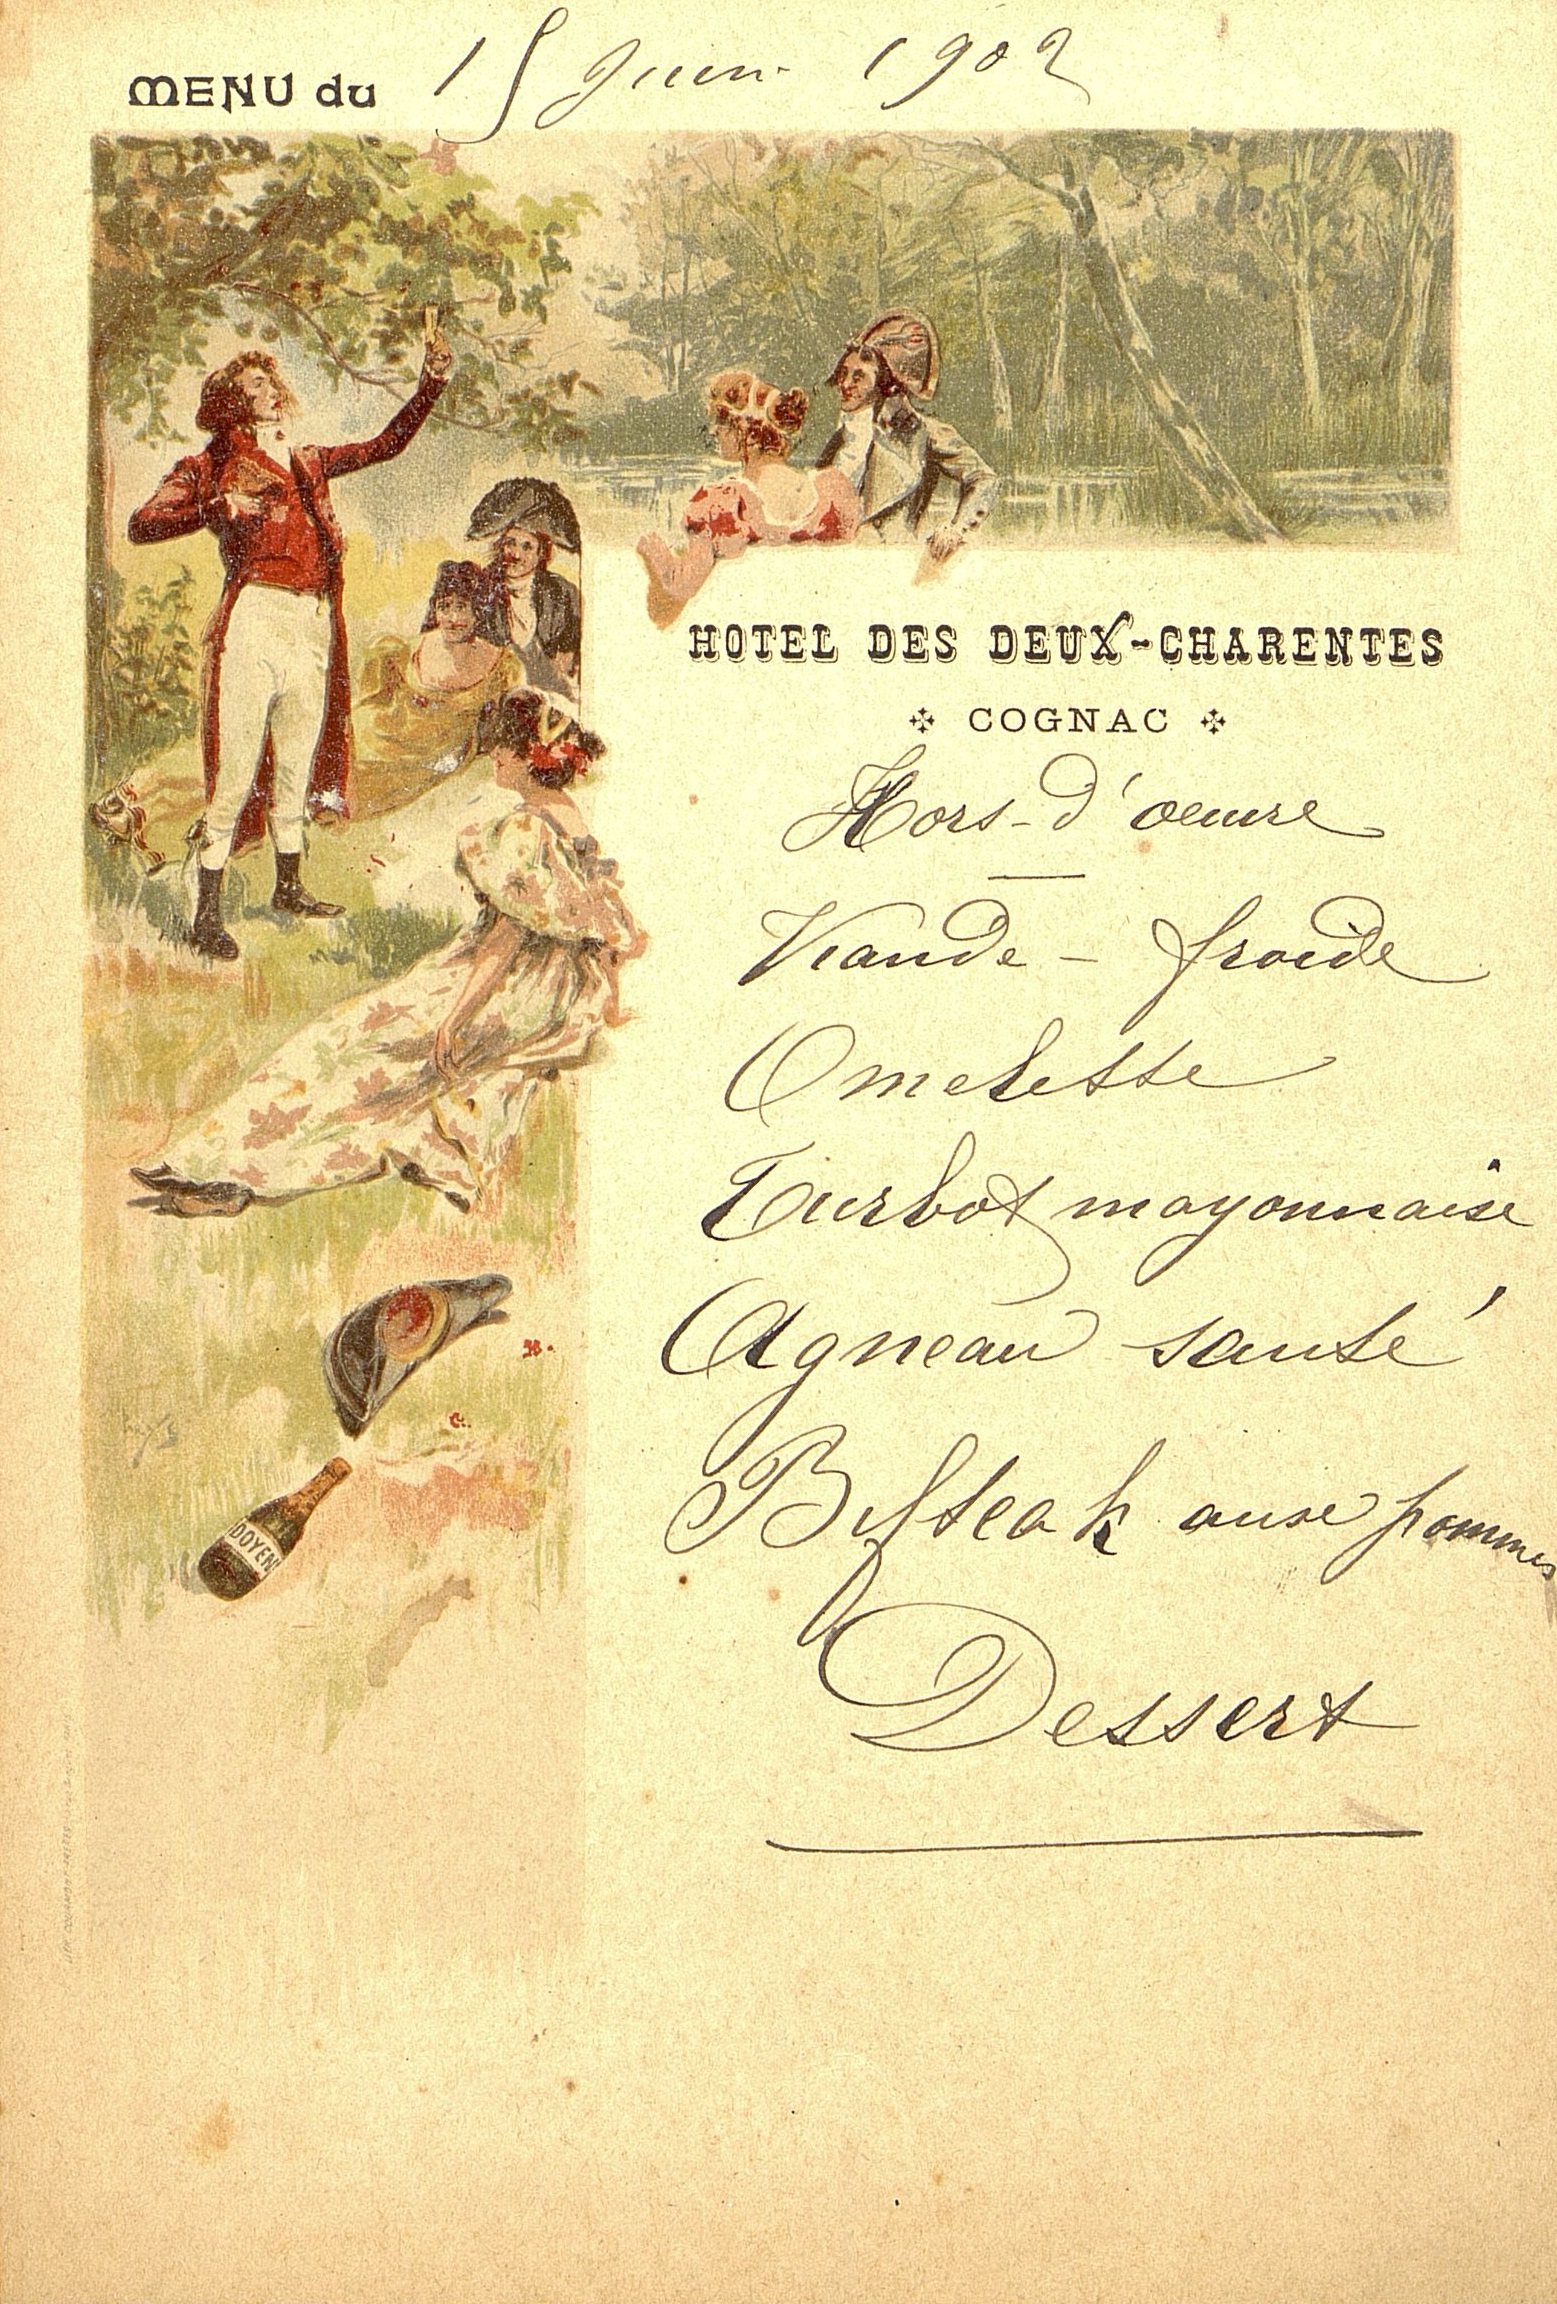 MENU du 15 Juin 1902
HOTEL DES DEUX-CHARENTES
COGNAC
Hors-d'oeuvre
Viande - froide
Omelette
Turbot mayonnaise
Agneau sauté
Bifteak aux pommes
Dessert
DOYEN